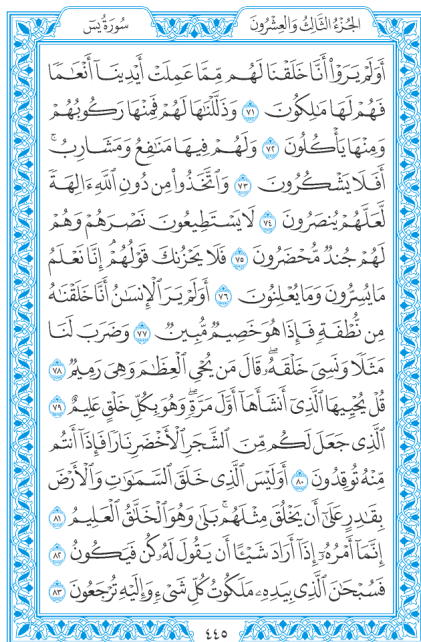 الجُزْءُ الثَّالِثُ وَالعِشْرُونَ سُورَةُ يسٓ
أَوَلَمْ يَرَوْا۟ أَنَّا خَلَقْنَا لَهُم مِّمَّا عَمِلَتْ أَيْدِينَآ أَنْعَٰمًا
فَهُمْ لَهَا مَٰلِكُونَ ٧١ وَذَلَّلْنَٰهَا لَهُمْ فَمِنْهَا رَكُوبُهُمْ
وَمِنْهَا يَأْكُلُونَ ٧٢ وَلَهُمْ فِيهَا مَنَٰفِعُ وَمَشَارِبُ ۖ
أَفَلَا يَشْكُرُونَ ٧٣ وَٱتَّخَذُوا۟ مِن دُونِ ٱللَّهِ ءَالِهَةً
لَّعَلَّهُمْ يُنصَرُونَ ٧٤ لَا يَسْتَطِيعُونَ نَصْرَهُمْ وَهُمْ
لَهُمْ جُندٌ مُّحْضَرُونَ ٧٥ فَلَا يَحْزُنكَ قَوْلُهُمْ ۘ إِنَّا نَعْلَمُ
مَا يُسِرُّونَ وَمَا يُعْلِنُونَ ٧٦ أَوَلَمْ يَرَ ٱلْإِنسَٰنُ أَنَّا خَلَقْنَٰهُ
مِن نُّطْفَةٍ فَإِذَا هُوَ خَصِيمٌ مُّبِينٌ ٧٧ وَضَرَبَ لَنَا
مَثَلًا وَنَسِىَ خَلْقَهُۥ ۖ قَالَ مَن يُحْىِ ٱلْعِظَٰمَ وَهِىَ رَمِيمٌ ٧٨
قُلْ يُحْيِيهَا ٱلَّذِىٓ أَنشَأَهَآ أَوَّلَ مَرَّةٍ ۖ وَهُوَ بِكُلِّ خَلْقٍ عَلِيمٌ ٧٩
ٱلَّذِى جَعَلَ لَكُم مِّنَ ٱلشَّجَرِ ٱلْأَخْضَرِ نَارًا فَإِذَآ أَنتُم
مِّنْهُ تُوقِدُونَ ٨٠ أَوَلَيْسَ ٱلَّذِى خَلَقَ ٱلسَّمَٰوَٰتِ وَٱلْأَرْضَ
بِقَٰدِرٍ عَلَىٰٓ أَن يَخْلُقَ مِثْلَهُم ۚ بَلَىٰ وَهُوَ ٱلْخَلَّٰقُ ٱلْعَلِيمُ ٨١
إِنَّمَآ أَمْرُهُۥٓ إِذَآ أَرَادَ شَيْـًٔا أَن يَقُولَ لَهُۥ كُن فَيَكُونُ ٨٢
فَسُبْحَٰنَ ٱلَّذِى بِيَدِهِۦ مَلَكُوتُ كُلِّ شَىْءٍ وَإِلَيْهِ تُرْجَعُونَ ٨٣
٤٤٥